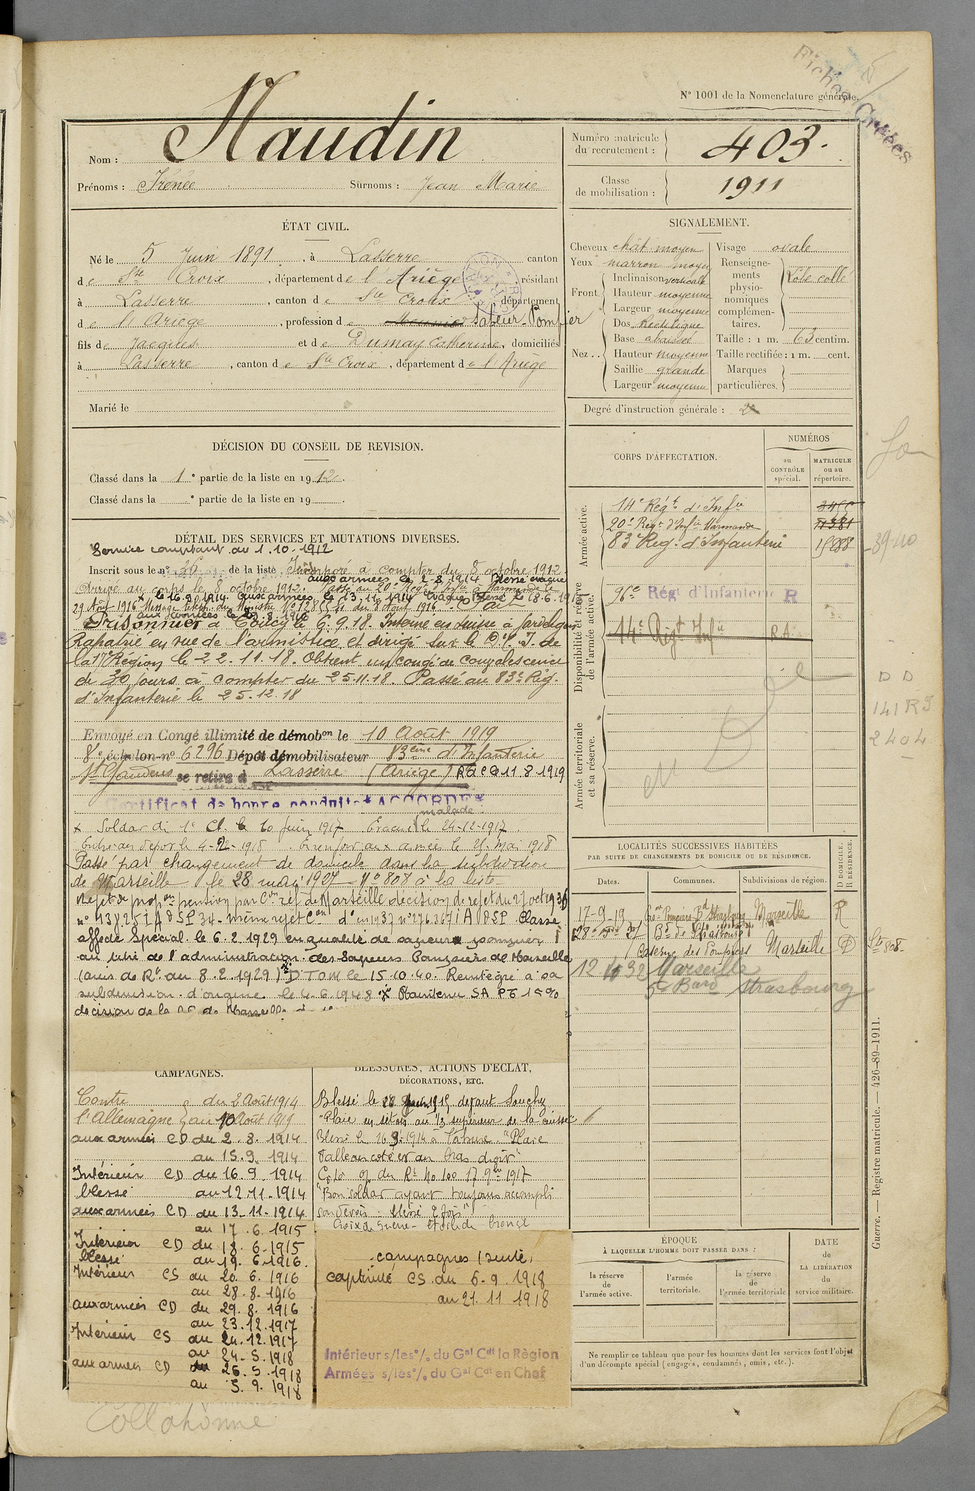 Fiches Créées
N° 1001 de la Nomenclature générale.
Nom : Naudin
Prénoms : Irénée Surnoms : Jean Marie
Numéro matricule du recrutement : 403.
Classe de mobilisation : 1911
ÉTAT CIVIL.
Né le 5 Juin 1891, à Lasserre canton
de Ste Croix, département de l'Ariège résidant
à Lasserre, canton de Ste Croix département
de l'Ariège, profession de Sapeur-Pompier
fils de Jacques et de Dumay Catherine, domiciliés
à Lasserre, canton de Ste Croix, département de l'Ariège
Marié le
SIGNALEMENT.
Cheveux chât moyen
Yeux marron moyen
Front. Inclinaison verticale
Hauteur moyenne
Largeur moyenne
Nez. Dos Rectiligne
Base abaissée
Hauteur moyenne
Saillie grande
Largeur moyenne
Visage ovale
Renseignements physionomiques complémentaires. lobe collé
Taille : 1 m. 63 centim.
Taille rectifiée : 1 m. cent.
Marques particulières.
Degré d'instruction générale : 2
DÉCISION DU CONSEIL DE REVISION.
Classé dans la 1e partie de la liste en 1912.
Classé dans la e partie de la liste en 19
DÉTAIL DES SERVICES ET MUTATIONS DIVERSES.
Service comptant du 1.10.1912
Inscrit sous le n° 26 de la liste Incorporé à compter du 8 octobre 1912.
aux armées le 2-8-1914 Blessé évacué
Arrivé au corps le 8 octobre 1912. Passé au 20e Régt d'Infie
le 16.9.1914. aux armées le 13.11.1914 évacué blessé le 18.6.1915
29 Août 1916
aux armées le 29.8.1916
Fait Prisonnier à Coucy le 6.9.18. Interné en Suisse à
Rapatrié en vue de l'armistice et dirigé sur le D. I. de
la 17e Région le 22.11.18. Obtient un congé de convalescence
de 30 jours à compter du 25.11.18. Passé au 83e Rég.
d'Infanterie le 25.12.18
Envoyé en Congé illimité de démobon le 10 Août 1919
8e échelon n° 6296 Dépôt démobilisateur 83ème d'Infanterie
St Gaudens se retire à Lasserre (Ariège) 11.8.1919
Certificat de bonne conduite ACCORDÉ
malade
x Soldat de 1e Cl. le 10 Juin 1917 Evacué le 24-12-1917.
Entré au dépôt le 4-2-1918. En renfort aux armées le 25 mai 1918
Passé par changement de domicile dans la subdivision
de Marseille le 28 mai 1927 N° 807 à la liste
Rejet de propon pension par Con réf de Marseille décision de rejet du 27 oct 1930
Classé
affecté spécial le 6.2.1929 en qualité de sapeur pompier
au titre de l'administration des Sapeurs Pompiers de Marseille
(avis de Rt. du 8.2.1929) D'TOM le 15.10.40. Réintégré à sa
subdivision d'origine le 4.6.1948 x Maintenu SA PT 15%
décision de la
CORPS D'AFFECTATION.
NUMÉROS
au CONTRÔLE spécial.
MATRICULE ou au répertoire.
Armée active.
14e Régt d'Infie
20e Régt d'Infie Marmande
83e Rég. d'Infanterie
Disponibilité et réserve de l'armée active.
96e Régt d'Infanterie R
14e Régt Infie RA
Armée territoriale et sa réserve.
D D
141 RI
2404
LOCALITÉS SUCCESSIVES HABITÉES
PAR SUITE DE CHANGEMENTS DE DOMICILE OU DE RÉSIDENCE.
Dates. Communes. Subdivisions de région. D DOMICILE. R RÉSIDENCE.
17-9-19 Bd Strasbourg Marseille R
Bd de Strasbourg
Caserne des Pompiers Marseille D
12 4 32 Marseille
Bard Strasbourg
CAMPAGNES.
Contre du 2 Août 1914
l'Allemagne au 10 Août 1919
aux armées CD du 2.8.1914
au 15.9.1914
Intérieur CD du 16.9.1914
blessé au 12.11.1914
aux armées CD du 13.11.1914
au 17.6.1915
Intérieur CD du 18.6.1915
blessé au 19.6.1916.
Intérieur CS du 20.6.1916
au 28.8.1916
aux armées CD du 29.8.1916
au 23.12.1917
Intérieur CS du 24.12.1917
au 24.5.1918
aux armées CD du 25.5.1918
au 5.9.1918
BLESSURES, ACTIONS D'ÉCLAT,
DÉCORATIONS, ETC.
Blessé le Juin 1915 devant Souchez
"Plaie en séton au 1/3 supérieur de la cuisse"
Blessé le 16.9.1914 à "Plaie
par balle au bras droit"
Cité o/ du Rt No 100 17 9bre 1917
"Bon soldat ayant toujours accompli
son devoir - blessé 2 fois"
Croix de guerre - Etoile de bronze
campagnes (suite)
captivité CS du 6.9.1918
au 21.11.1918
Intérieur s/les °/. du Gal Cdt la Région
Armées s/les °/. du Gal Cdt en Chef
ÉPOQUE
À LAQUELLE L'HOMME DOIT PASSER DANS :
la réserve de l'armée active.
l'armée territoriale.
la réserve de l'armée territoriale
DATE de LA LIBÉRATION du service militaire.
Ne remplir ce tableau que pour les hommes dont les services font l'objet
d'un décompte spécial (engagés, condamnés, omis, etc.).
Guerre. — Registre matricule. — 426-89-1911.